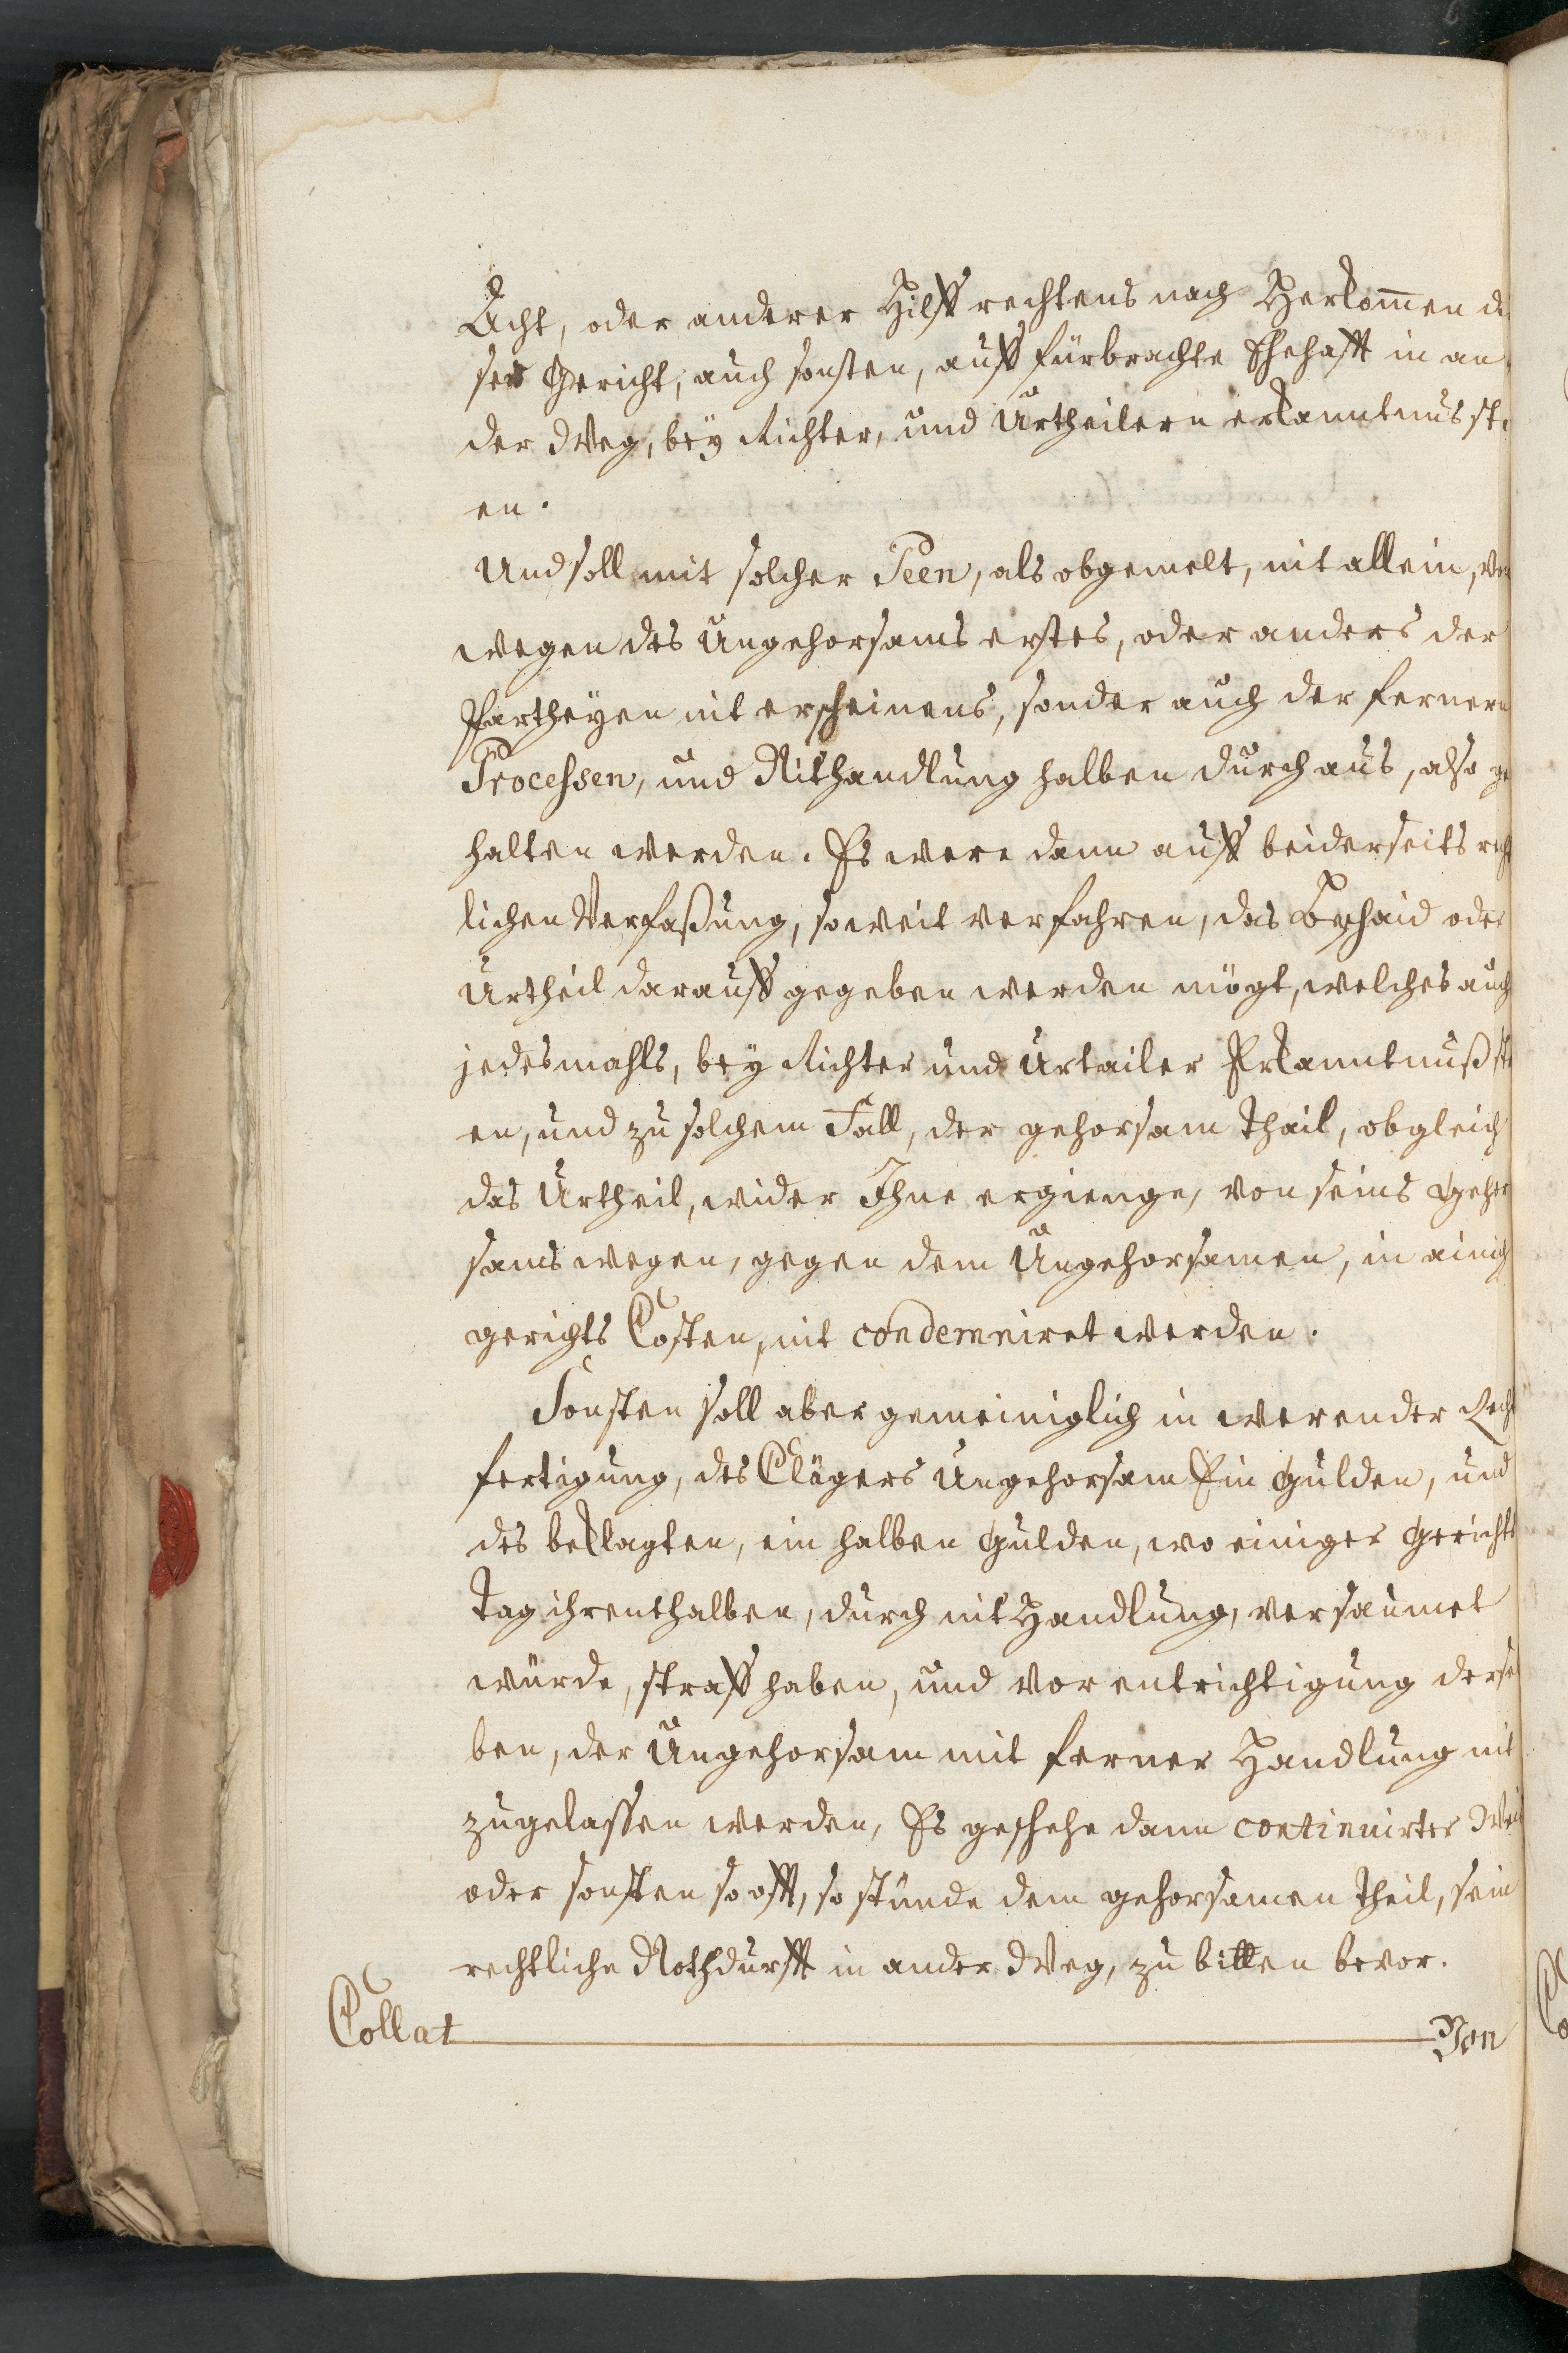 Acht, oder anderer Hilff rechtens nach Herkom̅en di
ser Gericht, auch sonsten, auff fürbrachte Ehehafft in an
der Weg, bey Richter, und Urtheilern erkanntnus ste
en.
Und soll mit solcher Peen, als obgemelt, nit allein, von
wegen des Ungehorsams erstes, oder anders der
Partheyen nit erscheinens, sonder auch der fernern
Processen, und Nithandlung halben durchaus, also ge
halten werden. Es were dann auff beiderseits recht
lichen Verfaßung, soweit verfahren, das Beschaid oder
Urtheil darauff gegeben werden mögt, welches auch
jedesmahls, bey Richter und Urtailer Erkanntnuß ste
en, und zu solchem Fall, der gehorsam thail, obgleich
das Urtheil, wider Ihne ergienge, von seins Gehor
sams wegen, gegen dem Ungehorsamen, in ainich
gerichts Costen, nit condemniret werden.
Sonsten soll aber gemeiniglich in werender Recht
fertigung, des Clägers Ungehorsam Ein Gulden, und
des beklagten, ein halben Gulden, wo einiger Gerichts
tag ihrenthalben, durch nit Handlung, versaumet
würde, straff haben, und vor entrichtigung dersel
ben, der Ungehorsam mit ferner Handlung nit
zugelassen werden, Es geschehe dann continuirter Weis
oder sonsten so offt, so stünde dem gehorsamen theil, sein
rechtliche Nothdurfft in ander Weg, zu bitten bevor.
Collat
Von